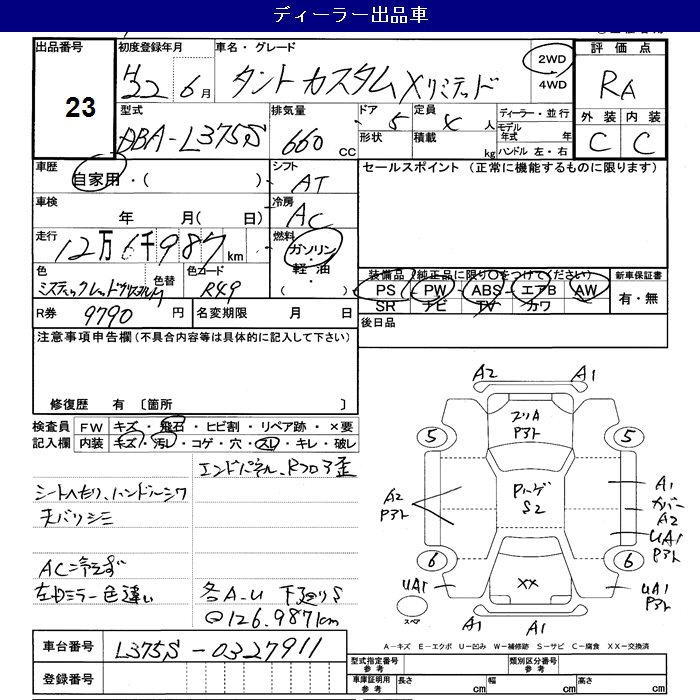 ディーラー出品車
出品番号
23
初度登録年月
H22年6月
車名・グレード
タント カスタム Xリミテッド
2WD
4WD
評価点
RA
外装 内装
C C
型式
DBA-L375S
排気量
660 CC
ドア
5
形状
定員
人
積載
kg
ディーラー・並行
モデル年式 年
ハンドル 左・右
車歴
自家用・( )
シフト
AT
セールスポイント (正常に機能するものに限ります)
車検
年 月( 日)
冷房
AC
走行
12万6千987km
燃料
ガソリン
軽油
・( )
色
ミスティックレッドクリスタルM
色替
色コード
R49
装備品(純正品に限り○をつけてください)
PS PW ABS エアB AW
SR ナビ TV カワ
新車保証書
有・無
R券
9790 円
名変期限 月 日
後日品
注意事項申告欄(不具合内容等は具体的に記入して下さい)
修復歴 有 〔箇所 〕
検査員記入欄
FW キズ・飛石・ヒビ割・リペア跡・×要
内装 キズ・汚レ・コゲ・穴・スレ・キレ・破レ
エンドパネル、Rフロア歪
シートヘタリ、ハンドルシワ
天バリシミ
AC冷えず
左ドアミラー色違い
各A-U 下廻りS
@126.987km
車台番号
L375S-0327911
登録番号
A2 A1
フリA
P3ト
5 5
A2
P3ト
Pハゲ
S2
A1
カバー
A2
UA1
P3ト
6 6
UA1
XX
UA1
P3ト
スペア
A1 A1
A-キズ E-エクボ U-凹み W-補修跡 S-サビ C-腐食 XX-交換済
型式指定番号
参考
類別区分番号
参考
車庫証明用
参考
長さ cm
幅 cm
高さ cm